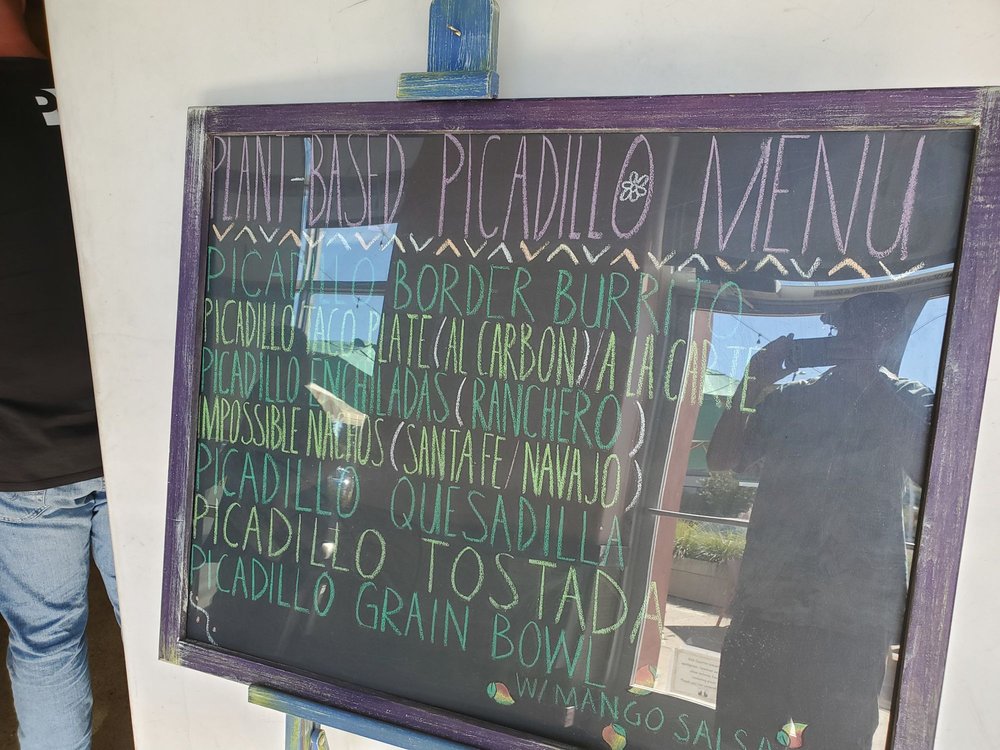 PLANT-BASED PICADILLO MENU
PICADILLO BORDER BURRITO
PICADILLO TACO PLATE (AL CARBON)/A LA CARTE
PICADILLO ENCHILADAS (RANCHERO)
IMPOSSIBLE NACHOS (SANTA FE/NAVAJO)
PICADILLO QUESADILLA
PICADILLO TOSTADA
PICADILLO GRAIN BOWL
W/ MANGO SALSA